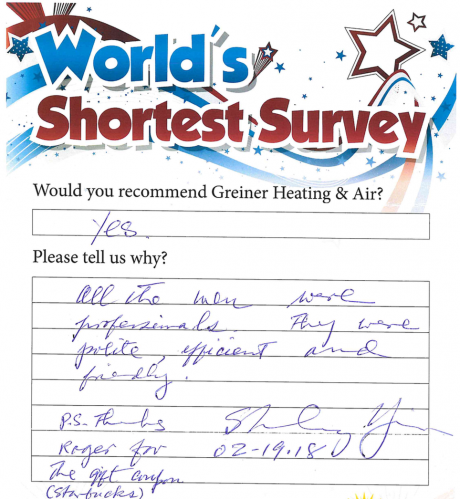 World's
Shortest Survey
Would you recommend Greiner Heating & Air?
Yes.
Please tell us why?
All the men were
professionals. They were
polite, efficient and
friendly.
P.S. Thanks
Roger for 02-19-18
the gift coupon
(Starbucks)